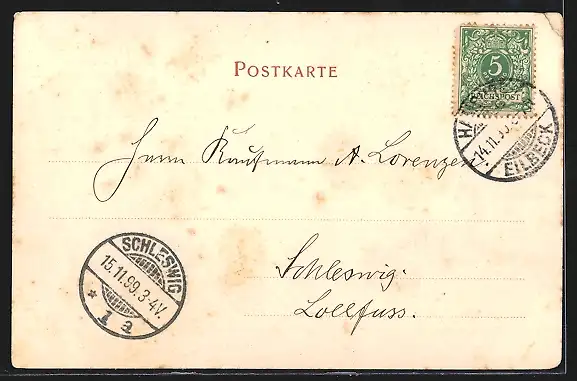 POSTKARTE
5
REICHSPOST
14.11.99
EILBECK
Herrn Kaufmann A. Lorenzen
Schleswig.
Lollfuss.
SCHLESWIG
15.11.99.3-4V.
* 1 a